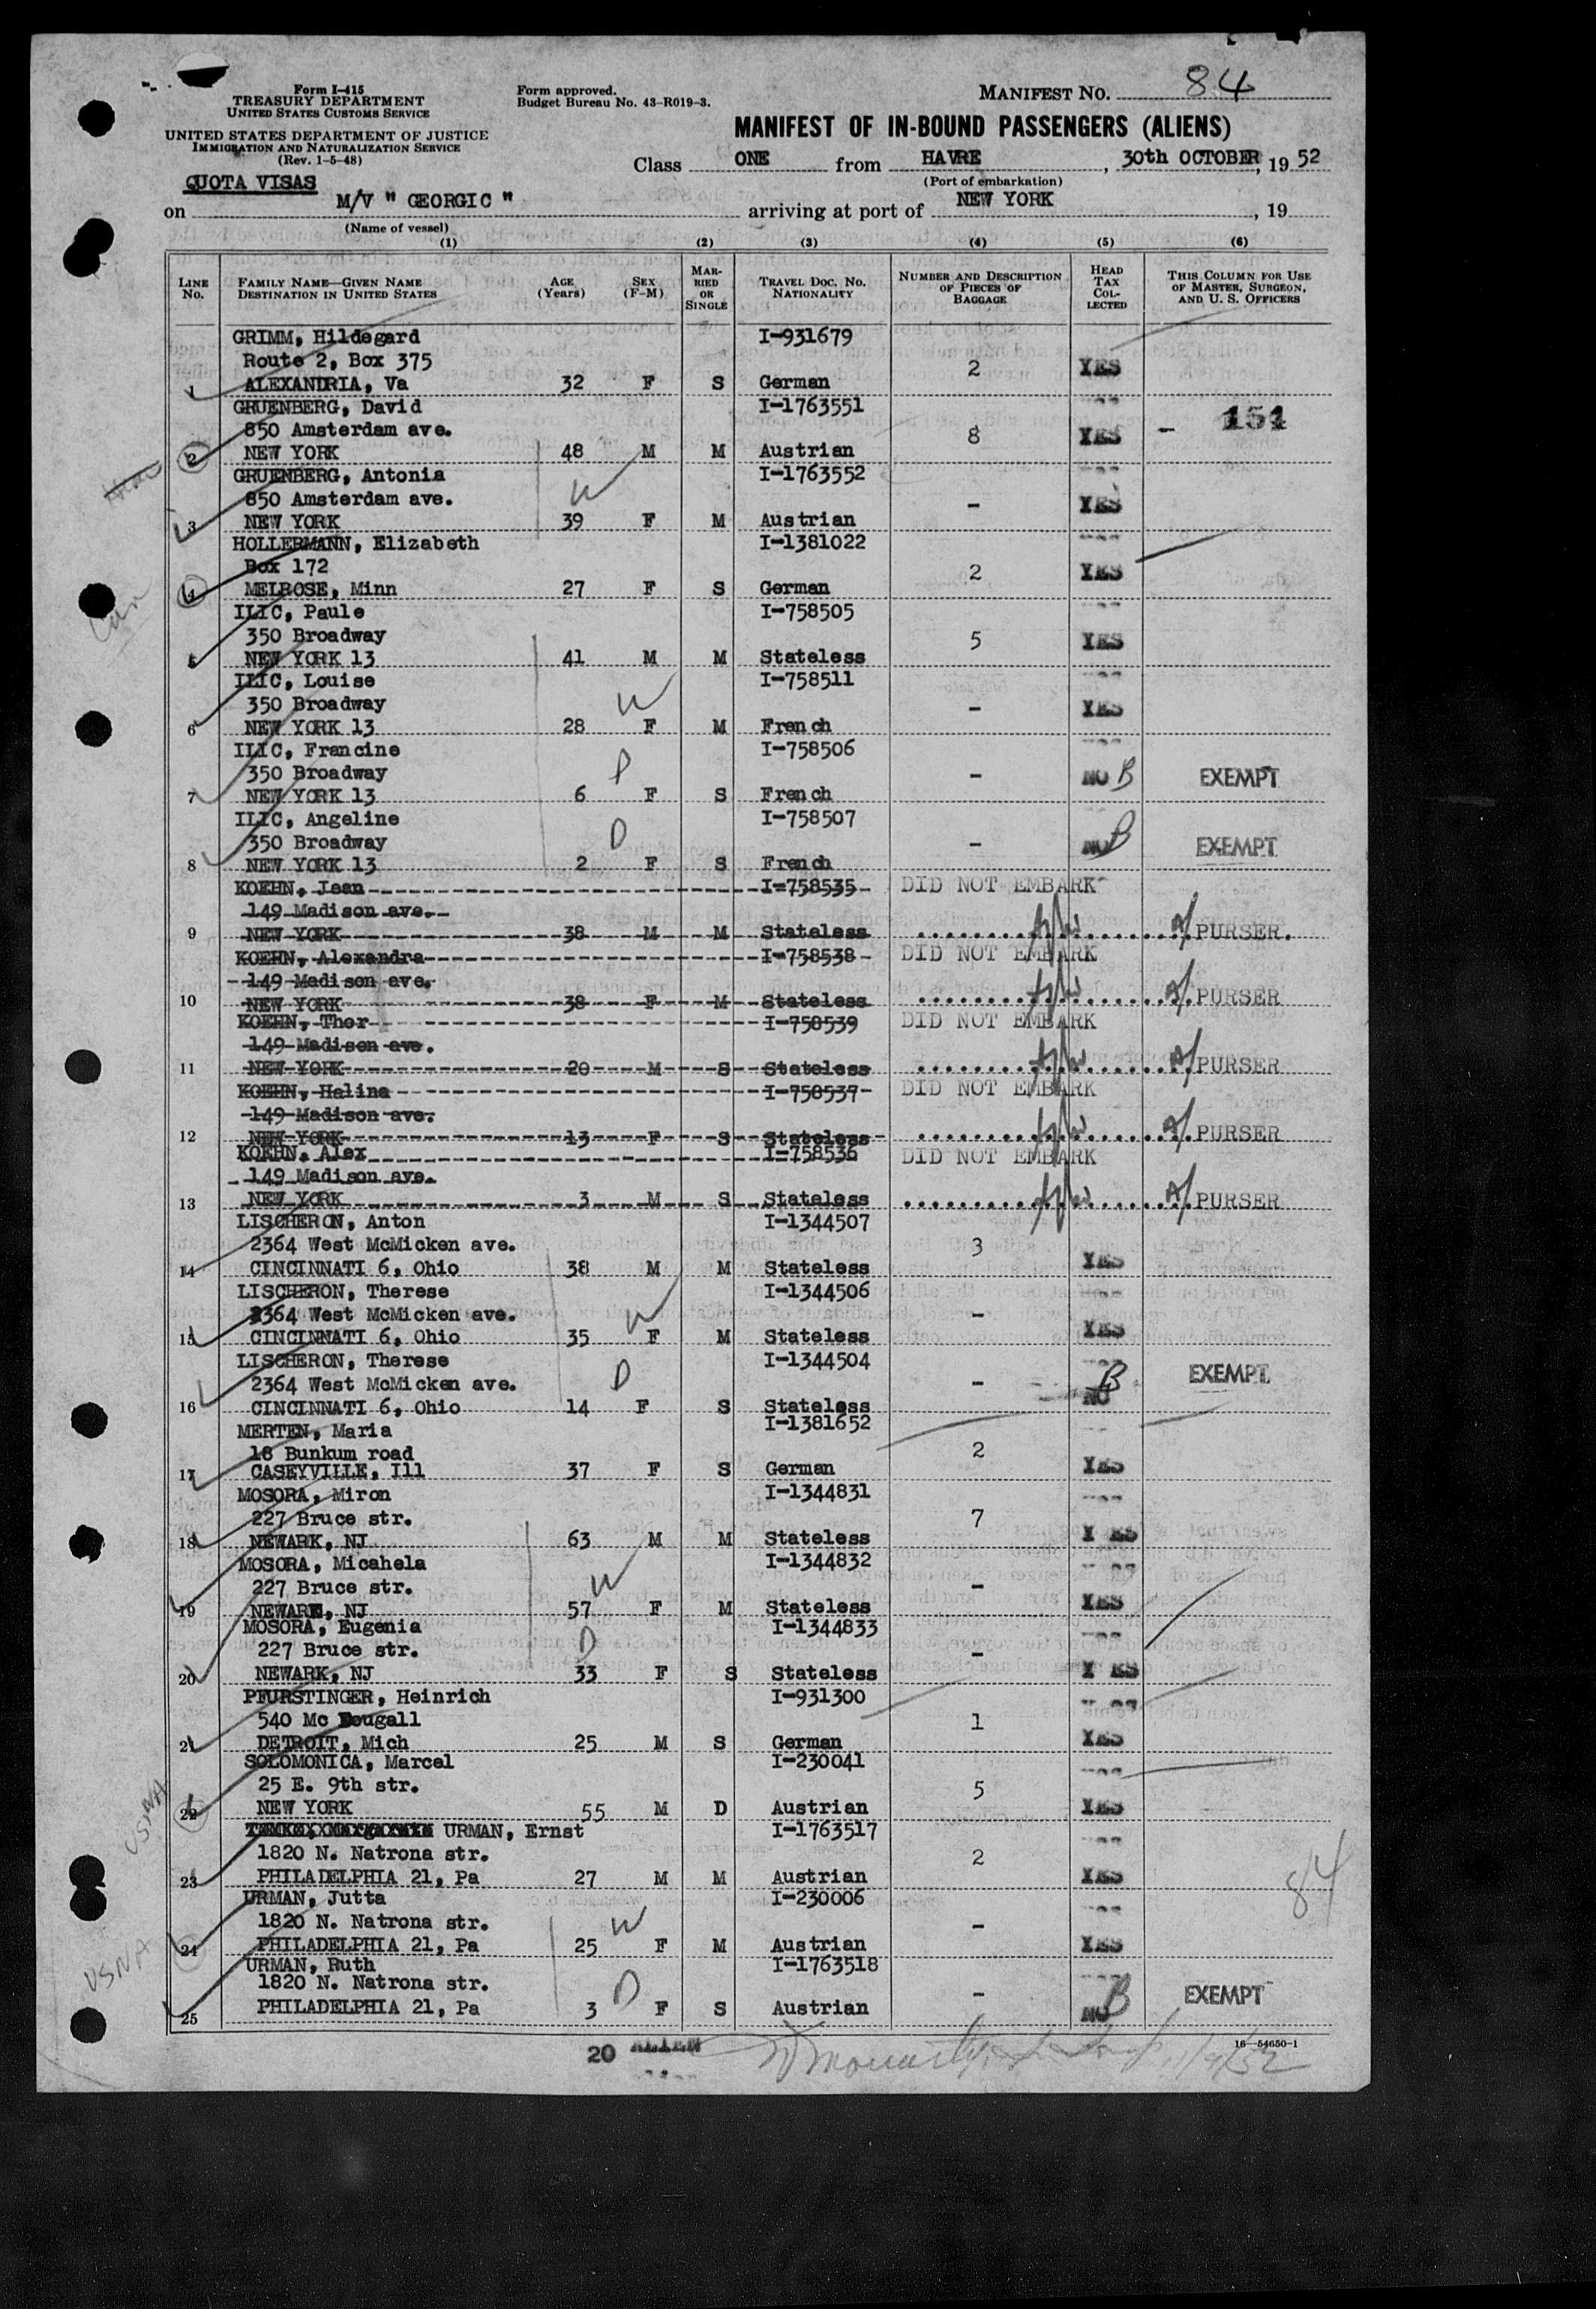 Form I-415
TREASURY DEPARTMENT
UNITED STATES CUSTOMS SERVICE
UNITED STATES DEPARTMENT OF JUSTICE
IMMIGRATION AND NATURALIZATION SERVICE
(Rev. 1-5-48)
Form approved.
Budget Bureau No. 43-R019-3.
MANIFEST NO. 84
MANIFEST OF IN-BOUND PASSENGERS (ALIENS)
Class ONE from HAVRE, 30th OCTOBER, 19 52
(Port of embarkation)
QUOTA VISAS
on M/V " GEORGIC " arriving at port of NEW YORK, 19
(Name of vessel)
(1) (2) (3) (4) (5) (6)
LINE No.
FAMILY NAME—GIVEN NAME
DESTINATION IN UNITED STATES
AGE (Years)
SEX (F-M)
MARRIED OR SINGLE
TRAVEL DOC. NO. NATIONALITY
NUMBER AND DESCRIPTION OF PIECES OF BAGGAGE
HEAD TAX COLLECTED
THIS COLUMN FOR USE OF MASTER, SURGEON, AND U. S. OFFICERS
GRIMM, Hildegard I-931679
Route 2, Box 375 2 YES
1 ALEXANDRIA, Va 32 F S German
GRUENBERG, David I-1763551
850 Amsterdam ave. 8 YES - 151
2 NEW YORK 48 M M Austrian
GRUENBERG, Antonia I-1763552
850 Amsterdam ave. W - YES
3 NEW YORK 39 F M Austrian
HOLLERMANN, Elizabeth I-1381022
Box 172 2 YES
4 MELROSE, Minn 27 F S German
ILIC, Paule I-758505
350 Broadway 5 YES
5 NEW YORK 13 41 M M Stateless
ILIC, Louise I-758511
350 Broadway W - YES
6 NEW YORK 13 28 F M French
ILIC, Francine I-758506
350 Broadway D - NO B EXEMPT
7 NEW YORK 13 6 F S French
ILIC, Angeline I-758507
350 Broadway D - NO B EXEMPT
8 NEW YORK 13 2 F S French
KOEHN, Jean I-758535 DID NOT EMBARK
149 Madison ave.
9 NEW YORK 38 M M Stateless PURSER.
KOEHN, Alexandra I-758538 DID NOT EMBARK
149 Madison ave.
10 NEW YORK 38 F M Stateless PURSER
KOEHN, Thor I-758539 DID NOT EMBARK
149 Madison ave.
11 NEW YORK 20 M S Stateless PURSER
KOEHN, Halina I-758537 DID NOT EMBARK
149 Madison ave.
12 NEW YORK 13 F S Stateless PURSER
KOEHN, Alex I-758536 DID NOT EMBARK
149 Madison ave.
13 NEW YORK 3 M S Stateless PURSER
LISCHERON, Anton I-1344507
2364 West McMicken ave. 3 YES
14 CINCINNATI 6, Ohio 38 M M Stateless
LISCHERON, Therese I-1344506
2364 West McMicken ave. W - YES
15 CINCINNATI 6, Ohio 35 F M Stateless
LISCHERON, Therese I-1344504
2364 West McMicken ave. D - NO B EXEMPT
16 CINCINNATI 6, Ohio 14 F S Stateless
MERTEN, Maria I-1381652
18 Bunkum road 2 YES
17 CASEYVILLE, Ill 37 F S German
MOSORA, Miron I-1344831
227 Bruce str. 7 YES
18 NEWARK, NJ 63 M M Stateless
MOSORA, Micahela I-1344832
227 Bruce str. W - YES
19 NEWARK, NJ 57 F M Stateless
MOSORA, Eugenia I-1344833
227 Bruce str. D - YES
20 NEWARK, NJ 33 F S Stateless
PFURSTINGER, Heinrich I-931300
540 Mc Dougall 1 YES
21 DETROIT, Mich 25 M S German
SOLOMONICA, Marcel I-230041
25 E. 9th str. 5 YES
22 NEW YORK 55 M D Austrian
URMAN, Ernst I-1763517
1820 N. Natrona str. 2 YES
23 PHILADELPHIA 21, Pa 27 M M Austrian
URMAN, Jutta I-230006
1820 N. Natrona str. W - YES
24 PHILADELPHIA 21, Pa 25 F M Austrian
URMAN, Ruth I-1763518
1820 N. Natrona str. D - NO B EXEMPT
25 PHILADELPHIA 21, Pa 3 F S Austrian
USNA
USNA
84
20 ALIEN
16—54650-1